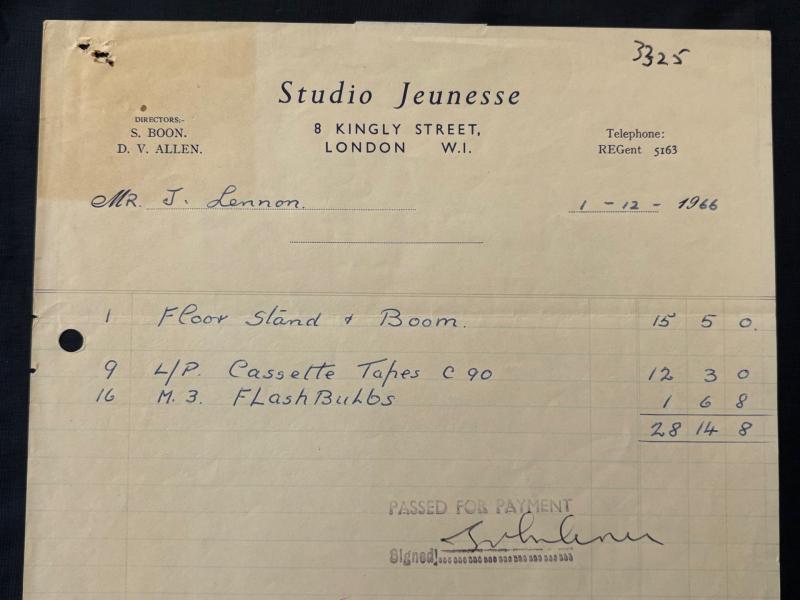 3325
Studio Jeunesse
DIRECTORS:-
S. BOON.
D. V. ALLEN.
8 KINGLY STREET,
LONDON W.1.
Telephone:
REGent 5163
MR. J. Lennon. 1 - 12 - 1966
1 Floor Stand & Boom. 15 5 0.
9 L/P. Cassette Tapes C 90 12 3 0
16 M. 3. FLash BuLbs 1 6 8
28 14 8
PASSED FOR PAYMENT
Signed